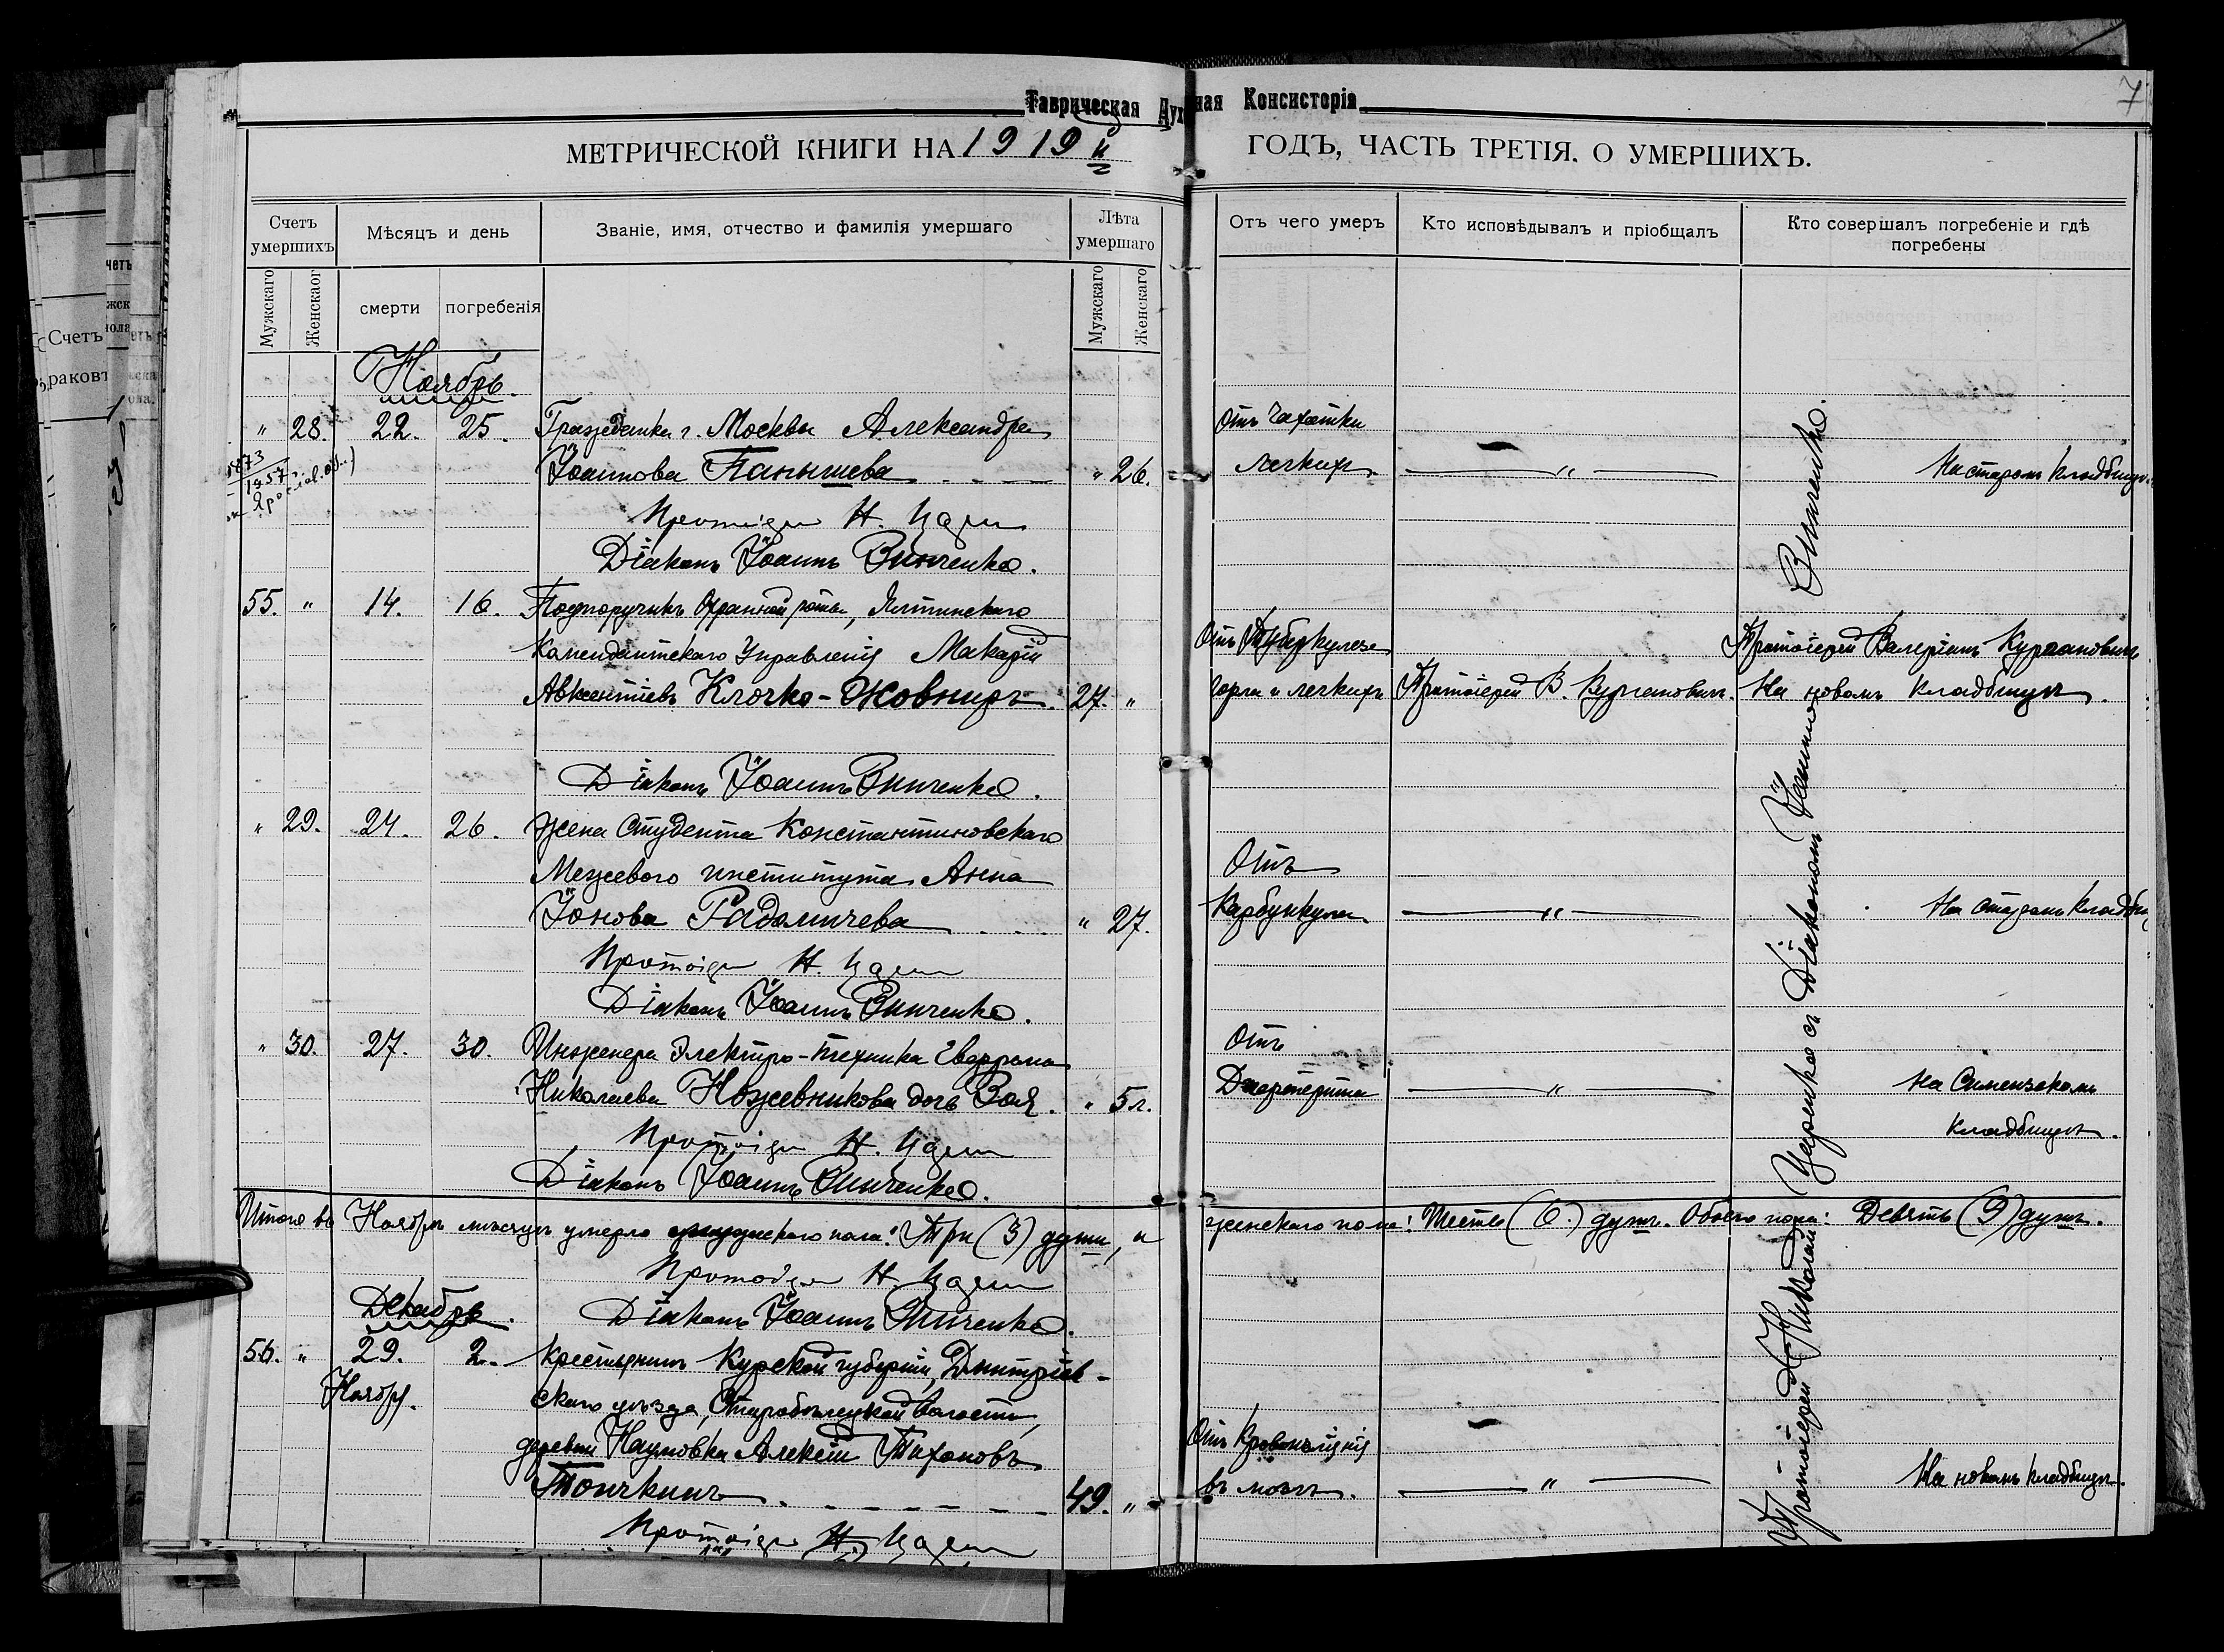 Таврическая Духная Консисторія
7
МЕТРИЧЕСКОЙ КНИГИ НА 1919й ГОДЪ, ЧАСТЬ ТРЕТІЯ. О УМЕРШИХЪ.
Счетъ умершихъ
Мѣсяцъ и день
Званіе, имя, отчество и фамилія умершаго
Лѣта умершаго
Отъ чего умеръ
Кто исповѣдывалъ и пріобщалъ
Кто совершалъ погребеніе и гдѣ погребены
Мужскаго
Женскаог
смерти
погребенія
Мужскаго
Женскаго
Ноябрь.
" 28. 22. 25. Гражданка г. Москвы Александра Отъ Чахотки
Іоаннова Панышева " 26. легкихъ. " На старомъ кладбищѣ.
1957
Протоіер Н.
Діаконъ Іоаннъ Винченко.
55. " 14. 16. Подпоручикъ Охранной роты, Ялтинскаго
Комендантскаго Управленія Макарій Отъ Туберкулеза Протоіерей Валеріанъ Кургановичъ
Авксентіевъ Клочко-Жовниръ. 27. " горла и легкихъ Протоіерей В. Кургановичъ. На новомъ кладбищѣ.
Діаконъ Іоаннъ Винченко.
" 29. 24. 26. Жена Студента Константиновскаго
Межевого института Анна Отъ
Іонова Радомичева " 27. Карбункула. " На старомъ кладби
Протоіер Н.
Діаконъ Іоаннъ Винченко.
" 30. 27. 30. Инженера Электро-техника Отъ
Николаева Ножевникова дочь Зоя. " 5 л. Дифтерита " На Симеизскомъ
кладбищѣ.
Протоіер Н.
Діаконъ Іоаннъ Винченко.
Итого въ Ноябрѣ мѣсяцѣ умерло мужскаго пола: Три (3) души, и женскаго пола: Шесть (6) душъ. Обоего пола: Девять (9) душъ.
Протоіер Н.
Декабрь.
Діаконъ Іоаннъ Винченко.
56. " 29. 2. Крестьянинъ Курской губерніи, Дмитріев-
Ноября. скаго уѣзда, волости,
деревни Наумовка Алексій Тихоновъ Отъ Кровоизліянія
Тончкинъ. 49. " въ мозгъ. " На новомъ кладбищѣ.
Протоіер Н.
Протоіерей Николай Царенко съ Діакономъ Іоанномъ Винченко.
Счетъ
раковъ